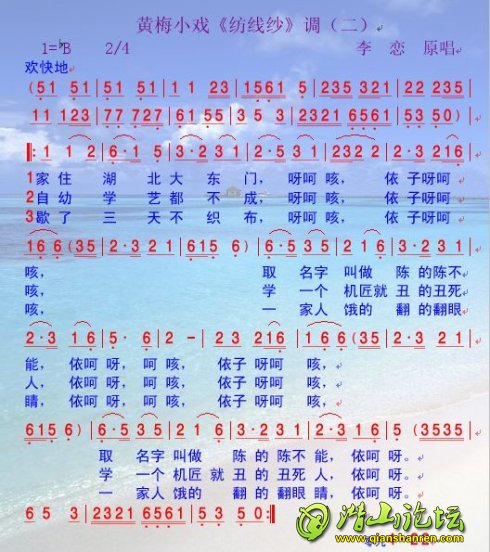 黄梅小戏《纺线纱》调（二）
1=♭B 2/4 李 恋 原唱
欢快地
(51 51|51 51|1 1 23|1561 5|235 321|22 235|
11 123|77 727|61 55|35 3|2321 6561|53 50)|
‖:1 1 2|6·1 5|3·2 3 1|2·5 3 1|232 2|2·3 216|
1家 住 湖 北大 东 门， 呀呵 咳， 依 子呀呵
2自幼 学 艺都 不 成，呀呵 咳， 依 子呀呵
3歇了 三 天不 织 布，呀呵 咳， 依 子呀呵
16 6(35|2·3 2 1|615 6)|6·5 3 5|2 1 6|3·2 3 1|
咳， 取 名字 叫做 陈 的陈不
咳， 学 一个 机匠就 丑 的丑死
咳， 一 家人 饿的 翻 的翻眼
2·3 1 6|5· 6|2 -|2 3 216|1 6 6(35|2·3 2 1|
能， 依呵 呀， 呵 咳， 依子 呀呵 咳，
人， 依呵 呀， 呵 咳， 依子 呀呵 咳，
睛， 依呵 呀， 呵 咳， 依子 呀呵 咳，
615 6)|6·5 3 5|2 1 6|3·2 3 1|2·3 1 6|5 (3535|
取 名字 叫做 陈 的陈不 能， 依呵 呀。
学 一个 机匠 就 丑 的丑死 人， 依呵 呀。
一 家人 饿的 翻 的翻眼 睛， 依呵 呀。
6 5 3|2321 6561|5·3 50:‖
潜山论坛
www.qianshanren.com